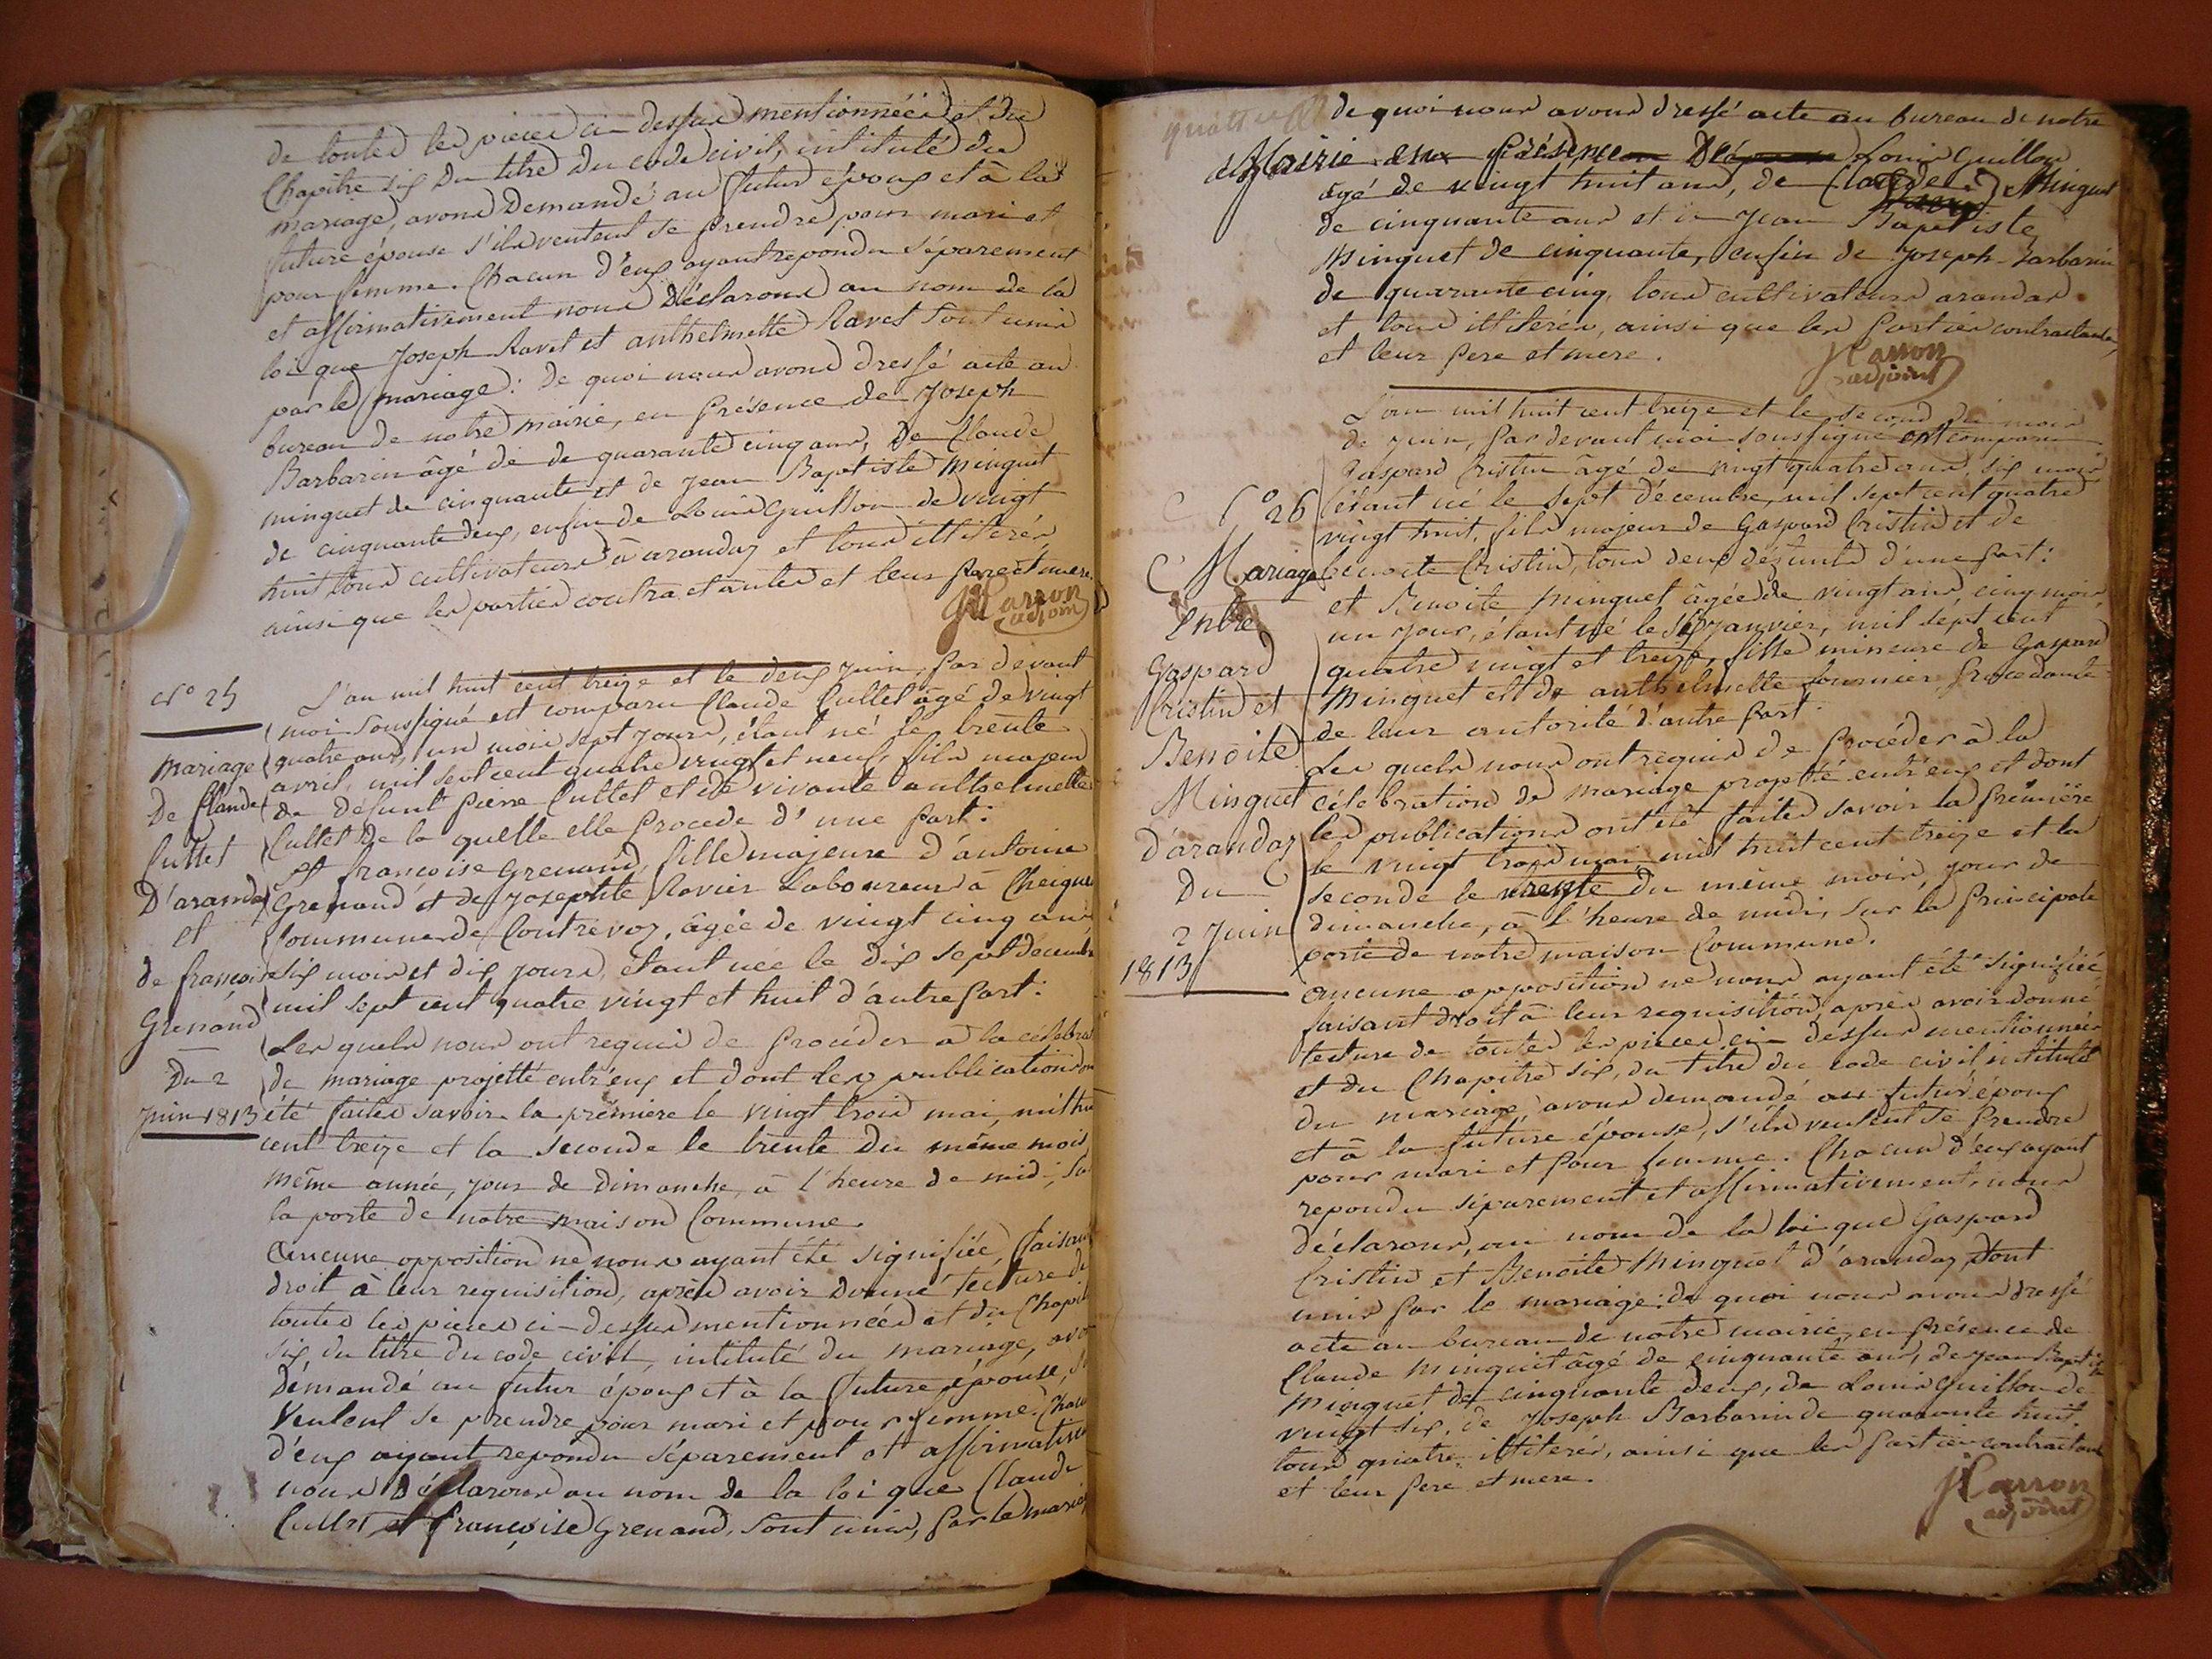 de toutes les pieces ci-dessus mentionnées et du
Chapitre six du titre du code civil, intitulé du
mariage, avons Demandé au futur époux et à la
future épouse s'ils veulent se prendre pour mari et
pour femme. Chacun d'eux ayant repondu séparement
et affirmativement nous Déclarons au nom de la
loi que Joseph Ravet et anthelmette Ravet sont unis
par le mariage: De quoi nous avons dressé acte au
bureau de notre mairie, en présence de Joseph
Barbarin âgé de de quarante cinq ans, De Claude
minguet de cinquante et de jean Baptiste Minguet
de cinquante deux, enfin de Louis Guillon de vingt
huit tous cultivateurs à arandaz et tous illiterés
ainsi que les parties contractantes et leurs pere et mere.
JCarron
adjoint
N° 25
Mariage
De Claude
Cullet
D'arandaz
et
de françoise
Grenand
Du 2
juin 1813
L'an mil huit cent treize et le deux juin, par devant
moi soussigné est comparu Claude Cullet âgé de vingt
quatre ans, un mois sept jours, étant né le trente
avril, mil sept cent quatre vingt et neuf, fils majeur
de défunt Pierre Cullet et de vivante anthelmette
Cullet De la quelle elle Procede d'une part:
et françoise Grenand, fille majeure d'antoine
Grenand et de Josephte Ravier Laboureurs à Cheignieu
Commune de Contrevoz, âgée de vingt cinq ans
six mois et dix jours, étant née le dix sept decembre
mil sept cent quatre vingt et huit d'autre part:
Les quels nous ont requis de Procéder a la célébra
de mariage projetté entr'eux et dont les publications on
été faites savoir la prémiere le vingt trois mai, mil hu
cent treize et la seconde le trente Du même mois
même année, jour de Dimanche, à l'heure de midi, su
la porte de notre maison Commune.
Aucune opposition ne nous ayant été signifiée, faisant
droit à leur requisition, après avoir Donné lecture de
toutes les pieces ci-dessus mentionnées et du Chapit
six du titre du code civil, intitulé du mariage, avo
Démandé au futur époux et à la future épouse, s'
veulent se prendre pour mari et pour femme. Chacu
d'eux ayant repondu séparement et affirmative
nous Déclarons au nom de la loi que Claude
Cullet et françoise Grenand, sont unis, par le mariag
de quoi nous avons dressé acte au bureau de notre
Mairie en Présence De Louis Guillon
âgé de vingt huit ans, de Claude Minguet
de cinquante ans et de Jean Baptiste
Minguet de cinquante, enfin de Joseph Barbarin
de quarante cinq, tous cultivateurs arandas
et tous illiterés, ainsi que les Parties contractantes,
et leur pere et mere.
JCarron
adjoint
N° 26
Mariage
Entre
Gaspard
Cristin et
Benoite
Minguet
D'arandaz
Du
2 Juin
1813
L'an mil huit cent treize et le second du mois
de juin, par devant moi soussigné est comparu
Gaspard Cristin âgé de vingt quatre ans six mois
étant né le sept décembre, mil sept cent quatre
vingt huit, fils majeur de Gaspard Cristin et de
benoite Cristin, tous deux défunts d'une part:
et Benoite Minguet âgée de vingt ans, cinq mois
un jour, étant né le janvier, mil sept cent
quatre vingt et treize, fille mineure de Gaspard
Minguet et de anthelmette fournier, procedante
de leur autorité d'autre part:
Les quels nous ont requis de Procéder à la
célébration de mariage projetté entr'eux et dont
les publications ont été faites savoir la premiere
le vingt trois mai mil huit cent treize et la
seconde le trente du même mois, jour de
dimanche, à l'heure de midi, sur la principale
porte de notre maison Commune.
Aucune opposition ne nous ayant été signifiée
faisant droit à leur requisition, après avoir donné
lecture de toutes les pieces ci-dessus mentionnées
et du Chapitre six, du titre du code civil intitulé
du mariage, avons demandé au futur époux
et à la future épouse, s'ils veulent se prendre
pour mari et pour femme. Chacun d'eux ayant
repondu séparement et affirmativement, nous
déclarons, au nom de la loi que Gaspard
Cristin et Benoite Minguet d'arandaz sont
unis par le mariage: de quoi nous avons dressé
acte au bureau de notre mairie, en présence de
Claude Minguet âgé de cinquante ans, de jean Baptiste
Minguet de cinquante deux, de Louis Guillon de
vingt six, de Joseph Barbarin de quarante huit,
tous quatre illiterés, ainsi que les parties contractantes
et leur pere et mere.
JCarron
adjoint